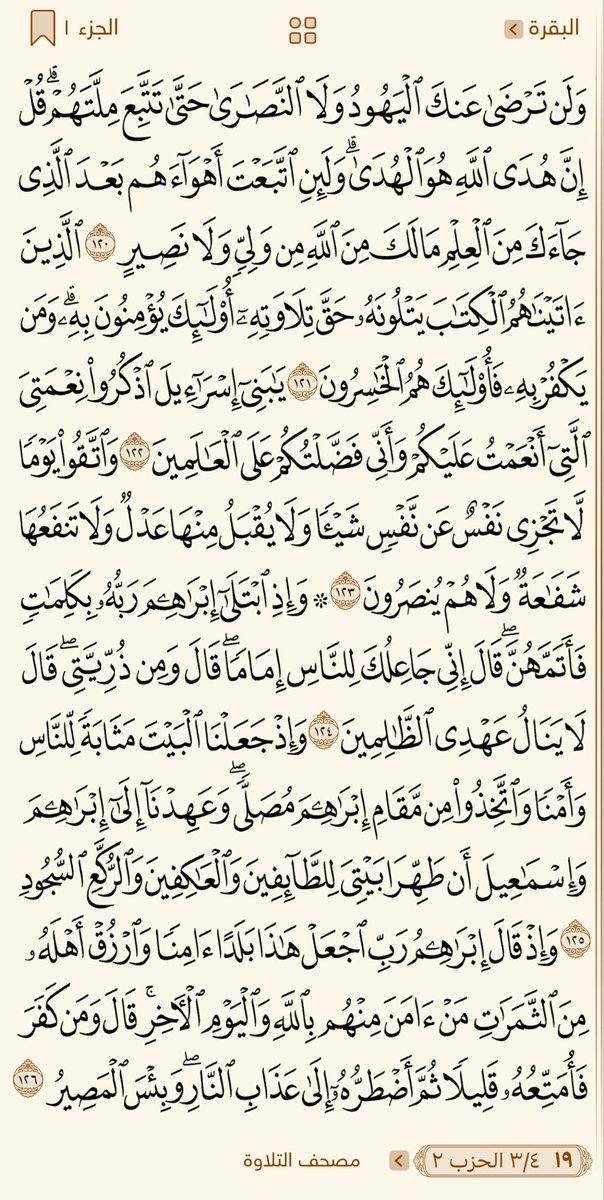 البقرة
الجزء ١
وَلَن تَرْضَىٰ عَنكَ ٱلْيَهُودُ وَلَا ٱلنَّصَٰرَىٰ حَتَّىٰ تَتَّبِعَ مِلَّتَهُمْۗ قُلْ
إِنَّ هُدَى ٱللَّهِ هُوَ ٱلْهُدَىٰۗ وَلَئِنِ ٱتَّبَعْتَ أَهْوَآءَهُم بَعْدَ ٱلَّذِى
جَآءَكَ مِنَ ٱلْعِلْمِ مَا لَكَ مِنَ ٱللَّهِ مِن وَلِىٍّ وَلَا نَصِيرٍ ١٢٠ ٱلَّذِينَ
ءَاتَيْنَٰهُمُ ٱلْكِتَٰبَ يَتْلُونَهُۥ حَقَّ تِلَاوَتِهِۦٓ أُو۟لَٰٓئِكَ يُؤْمِنُونَ بِهِۦۗ وَمَن
يَكْفُرْ بِهِۦ فَأُو۟لَٰٓئِكَ هُمُ ٱلْخَٰسِرُونَ ١٢١ يَٰبَنِىٓ إِسْرَٰٓءِيلَ ٱذْكُرُوا۟ نِعْمَتِىَ
ٱلَّتِىٓ أَنْعَمْتُ عَلَيْكُمْ وَأَنِّى فَضَّلْتُكُمْ عَلَى ٱلْعَٰلَمِينَ ١٢٢ وَٱتَّقُوا۟ يَوْمًا
لَّا تَجْزِى نَفْسٌ عَن نَّفْسٍ شَيْـًٔا وَلَا يُقْبَلُ مِنْهَا عَدْلٌ وَلَا تَنفَعُهَا
شَفَٰعَةٌ وَلَا هُمْ يُنصَرُونَ ١٢٣ ۞ وَإِذِ ٱبْتَلَىٰٓ إِبْرَٰهِـۧمَ رَبُّهُۥ بِكَلِمَٰتٍ
فَأَتَمَّهُنَّۖ قَالَ إِنِّى جَاعِلُكَ لِلنَّاسِ إِمَامًاۖ قَالَ وَمِن ذُرِّيَّتِىۖ قَالَ
لَا يَنَالُ عَهْدِى ٱلظَّٰلِمِينَ ١٢٤ وَإِذْ جَعَلْنَا ٱلْبَيْتَ مَثَابَةً لِّلنَّاسِ
وَأَمْنًا وَٱتَّخِذُوا۟ مِن مَّقَامِ إِبْرَٰهِـۧمَ مُصَلًّىۖ وَعَهِدْنَآ إِلَىٰٓ إِبْرَٰهِـۧمَ
وَإِسْمَٰعِيلَ أَن طَهِّرَا بَيْتِىَ لِلطَّآئِفِينَ وَٱلْعَٰكِفِينَ وَٱلرُّكَّعِ ٱلسُّجُودِ
١٢٥ وَإِذْ قَالَ إِبْرَٰهِـۧمُ رَبِّ ٱجْعَلْ هَٰذَا بَلَدًا ءَامِنًا وَٱرْزُقْ أَهْلَهُۥ
مِنَ ٱلثَّمَرَٰتِ مَنْ ءَامَنَ مِنْهُم بِٱللَّهِ وَٱلْيَوْمِ ٱلْـَٔاخِرِۚ قَالَ وَمَن كَفَرَ
فَأُمَتِّعُهُۥ قَلِيلًا ثُمَّ أَضْطَرُّهُۥٓ إِلَىٰ عَذَابِ ٱلنَّارِۖ وَبِئْسَ ٱلْمَصِيرُ ١٢٦
١٩ ٣/٤ الحزب ٢
مصحف التلاوة